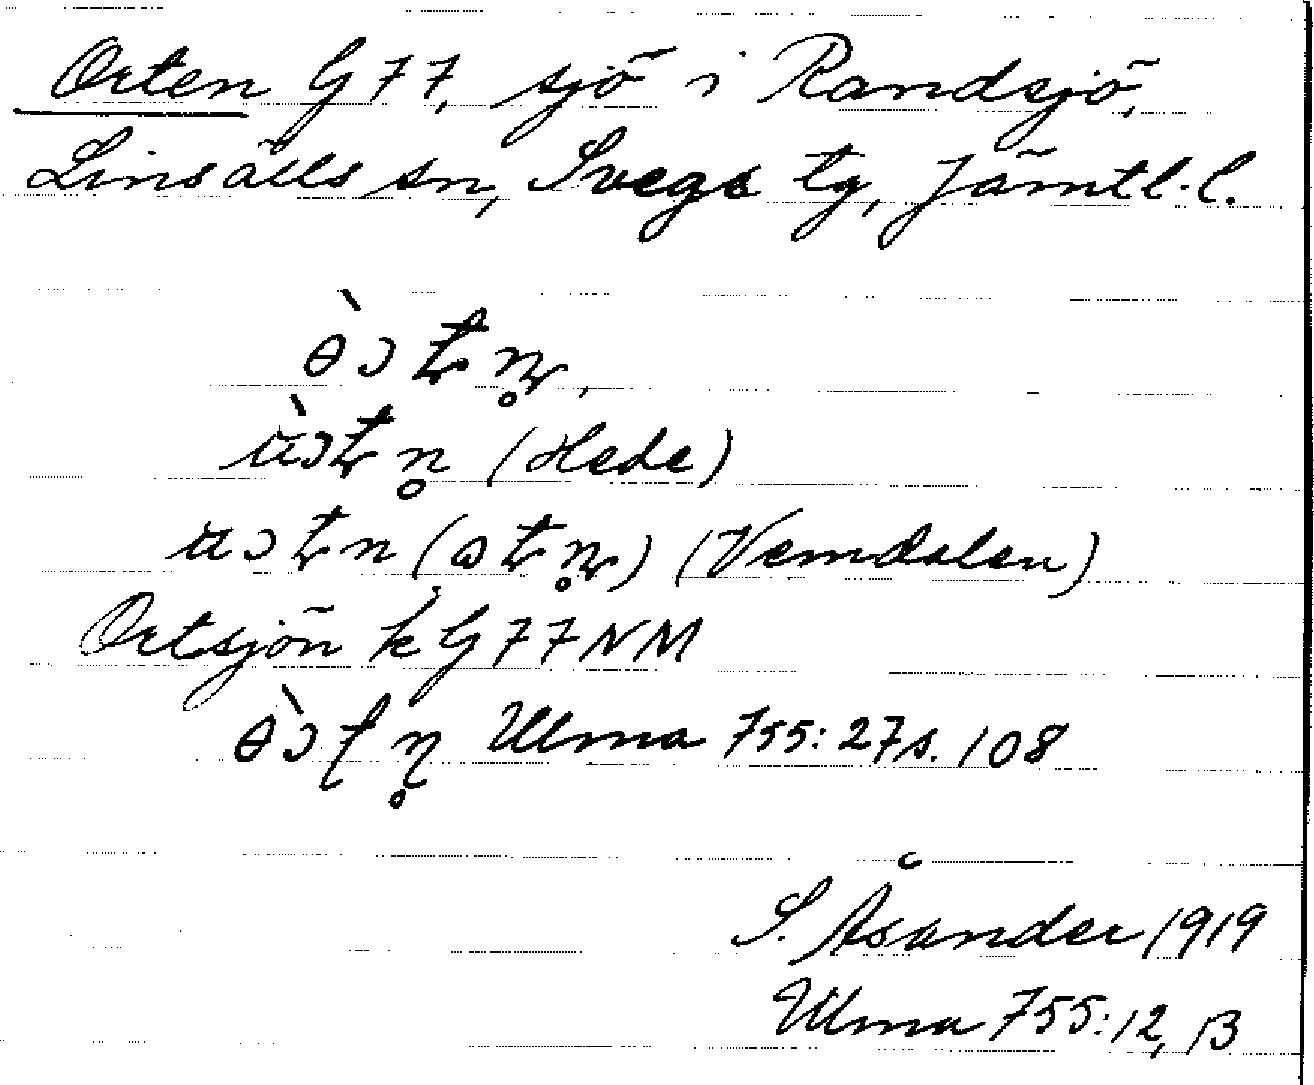 Orten G77, sjö i Randsjö,
Linsälls sn, Svegs tg, Jämtl. l.
(Hede)
(Vemdalen)
Ortsjön k G77NM
Ulma 755:27 s. 108
S. Åsander 1919
Ulma 755:12, B